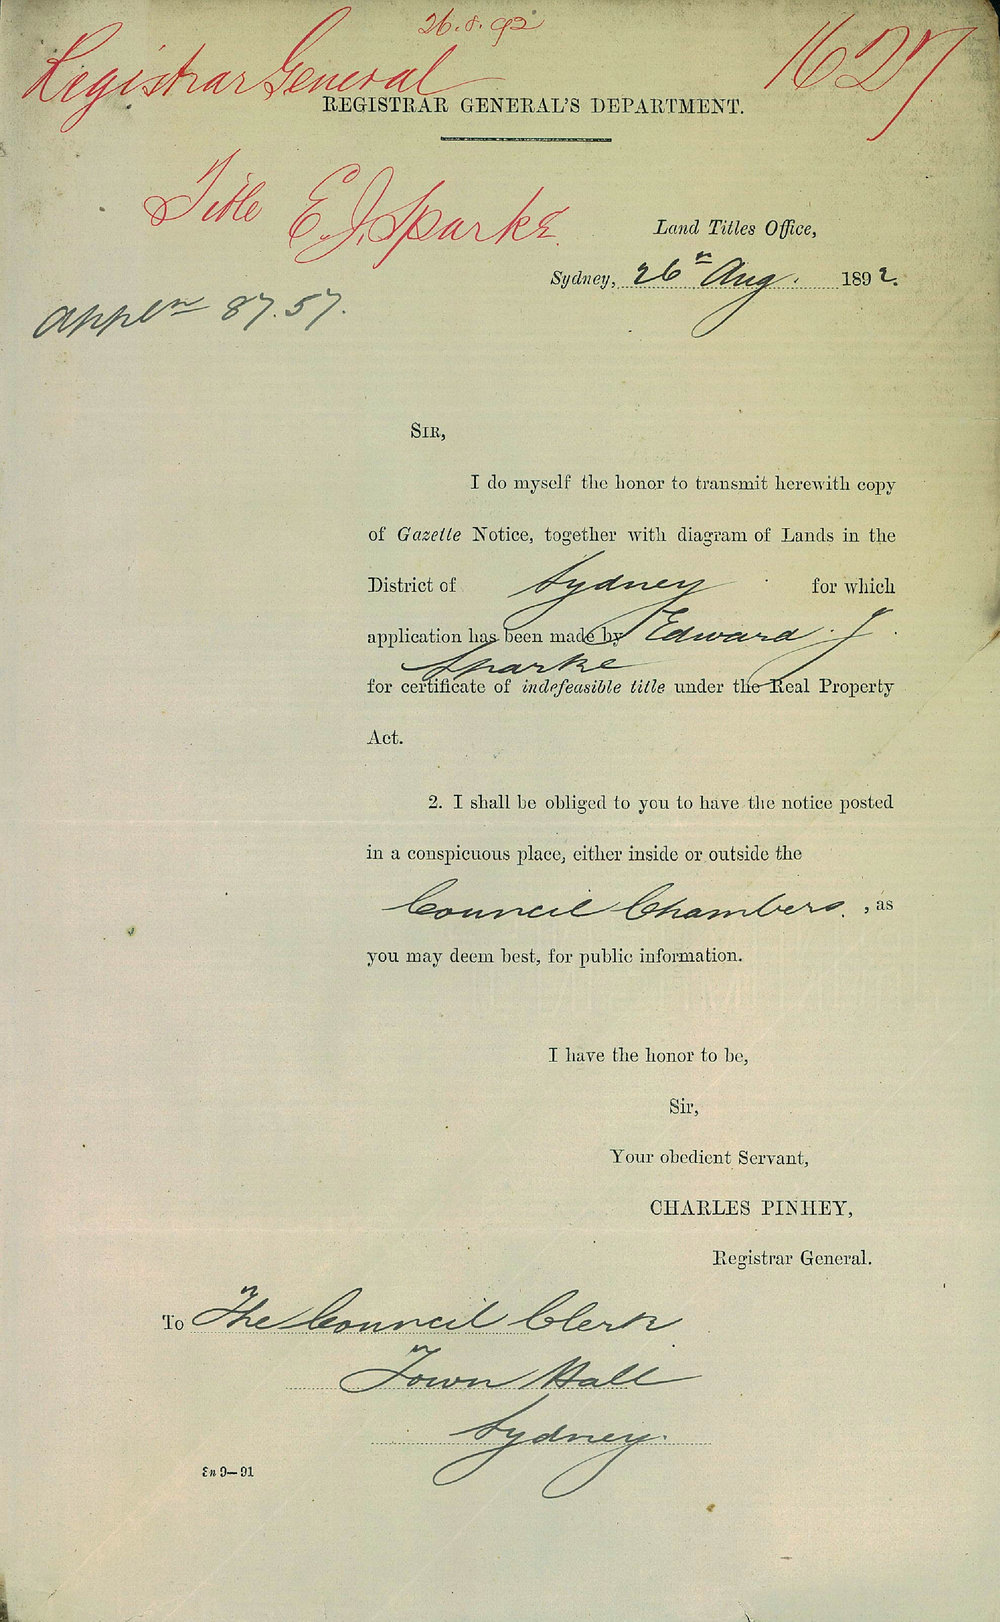 26.8.92
Registrar General
1627
REGISTRAR GENERAL'S DEPARTMENT.
Title E. J. Sparke
Land Titles Office,
Sydney, 26th Aug. 1892.
Appln 8757.
SIR,
I do myself the honor to transmit herewith copy
of Gazette Notice, together with diagram of Lands in the
District of Sydney for which
application has been made by Edward J
Sparke
for certificate of indefeasible title under the Real Property
Act.
2. I shall be obliged to you to have the notice posted
in a conspicuous place, either inside or outside the
Council Chambers. , as
you may deem best, for public information.
I have the honor to be,
Sir,
Your obedient Servant,
CHARLES PINHEY,
Registrar General.
To The Council Clerk
Town Hall
Sydney.
9—91